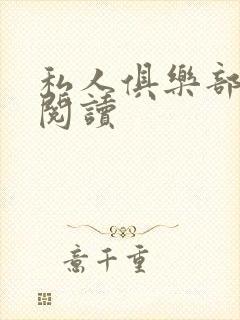 私人俱樂部
閱讀
意千重